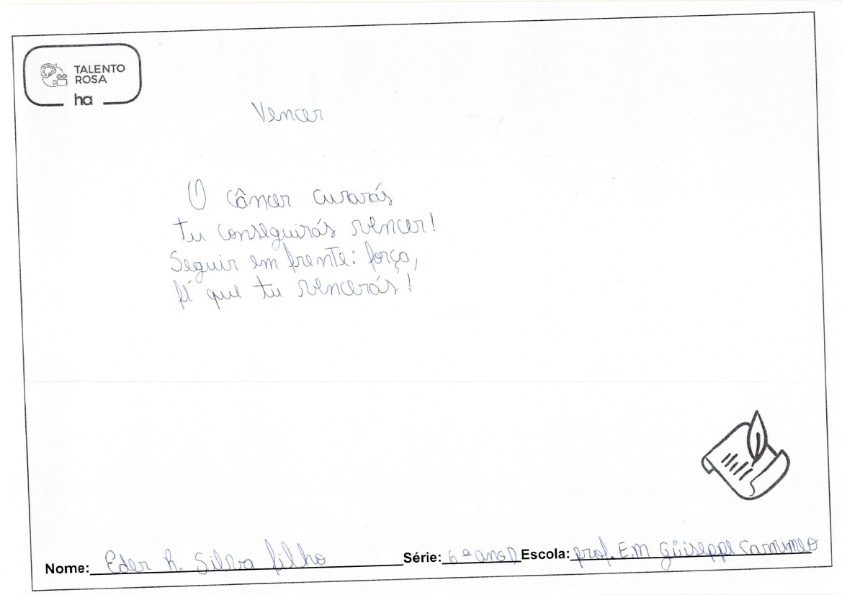 TALENTO
ROSA
ha
Vencer
O câncer curarás
tu conseguirás vencer!
Seguir em frente: força,
fé que tu vencerás!
Nome: Eder R. Silva filho Série: 6º ano D Escola: prof. Em Güiseppe